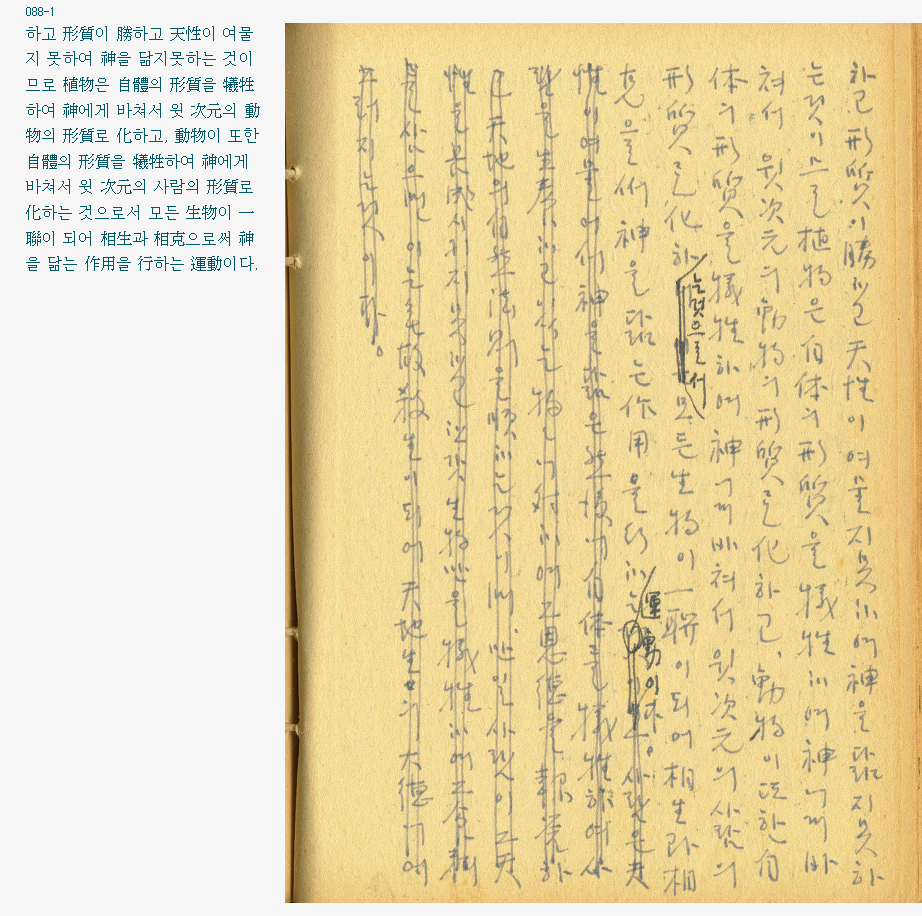 088-1
하고 形質이 勝하고 天性이 여물
지 못하여 神을 닮지못하는 것이
므로 植物은 自體의 形質을 犧牲
하여 神에게 바쳐서 윗 次元의 動
物의 形質로 化하고, 動物이 또한
自體의 形質을 犧牲하여 神에게
바쳐서 윗 次元의 사람의 形質로
化하는 것으로서 모든 生物이 一
聯이 되어 相生과 相克으로써 神
을 닮는 作用을 行하는 運動이다.
하고 形質이 勝하고 天性이 여물지못하여 神을 닮지못하
는것이므로 植物은 自体의 形質을 犧牲하여 神에게 바
쳐서 윗次元의 動物의 形質로 化하고, 動物이 또한 自
体의 形質을 犧牲하여 神에게 바쳐서 윗次元의 사람의
形質로 化하는것으로서 모든 生物이 一聯이 되어 相生과 相
克으로써 神을 닮는 作用을 行하는 運動이다. 사람은 天
性이 여물어서 神을 닮은 然後에 自体를 犧牲하여
生養하고 있는 物에 對하여 그 恩德을 報答하
고 天地의 自然法則을 順하는 것이며 만일 사람이 그 天
性을 完成시키지 못하고 生物만을 犧牲하여
이는 殺生이 되어 天地生生의 大德에 어
그러지는것이다.